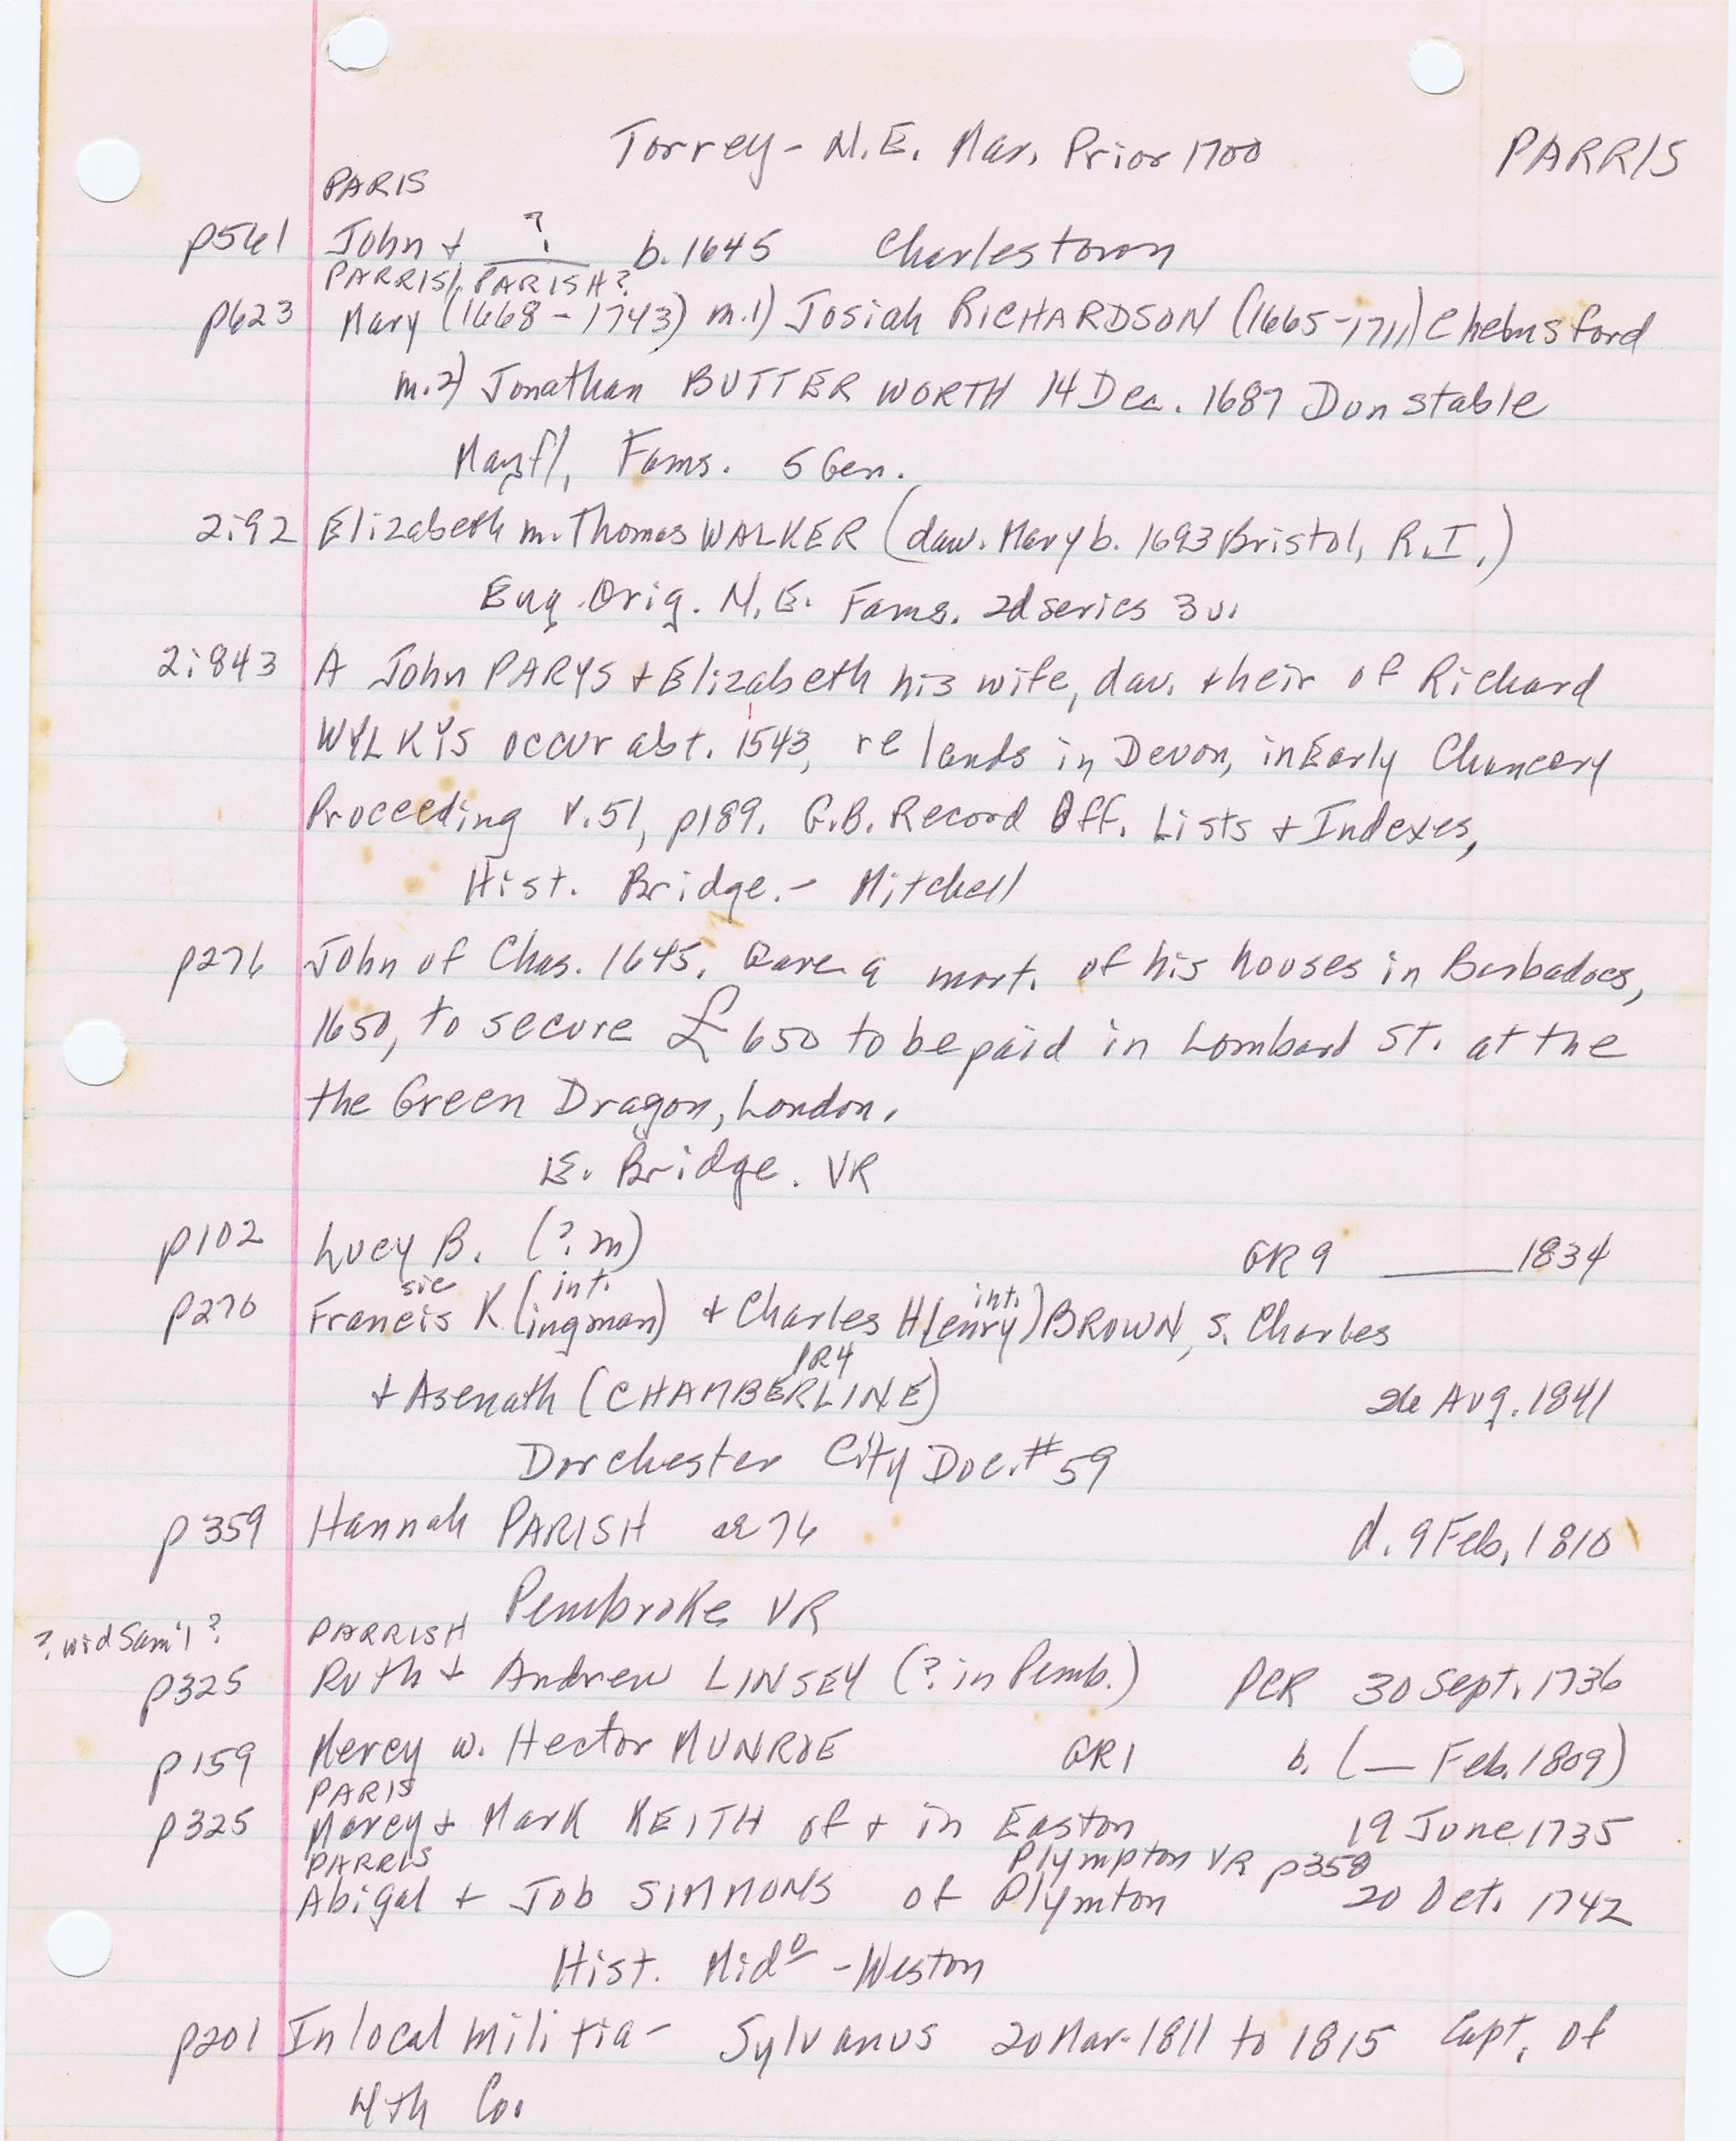 Torrey - N.E. Mar. Prior 1700 PARRIS
PARIS
p561 John + ? b. 1645 Charlestown
PARRIS/PARISH?
p623 Mary (1668-1743) m.1) Josiah RICHARDSON (1665-1711) Chelmsford
m.2) Jonathan BUTTERWORTH 14 Dec. 1687 Dunstable
Mayfl, Fams. 5 Gen.
2:92 Elizabeth m. Thomas WALKER (dau. Mary b. 1693 Bristol, R.I.)
Eng. Orig. N.E. Fams. 2d series 3v.
2:843 A John PARYS + Elizabeth his wife, dau. + heir of Richard
WYLKYS occur abt. 1543, re lands in Devon, in Early Chancery
Proceeding V.51, p189. G.B. Record Off. Lists + Indexes,
Hist. Bridge. - Mitchell
p276 John of Chas. 1645. Gave a mort. of his houses in Barbadoes,
1650, to secure £650 to be paid in Lombard St. at the
the Green Dragon, London.
E. Bridge. VR
p102 Lucy B. (?m) GR9 ____ 1834
sic int. int.
p270 Francis K(ingman) + Charles H(enry) BROWN, s. Charles
PR4
+ Asenath (CHAMBERLINE) 26 Aug. 1841
Dorchester City Doc. #59
p359 Hannah PARISH ae 76 d. 9 Feb. 1810
Pembroke VR
? wid Sam'l ? PARRISH
p325 Ruth + Andrew LINSEY (? in Pemb.) PCR 30 Sept. 1736
p159 Mercy w. Hector MUNROE GR1 b. (— Feb. 1809)
PARIS
p325 Marcy + Mark KEITH of + in Easton 19 June 1735
PARRIS Plympton VR p358
Abigal + Job SIMMONS of Plymton 20 Oct. 1742
Hist. Mido - Weston
p201 In local militia - Sylvanus 20 Mar. 1811 to 1815 Capt. of
4th Co.